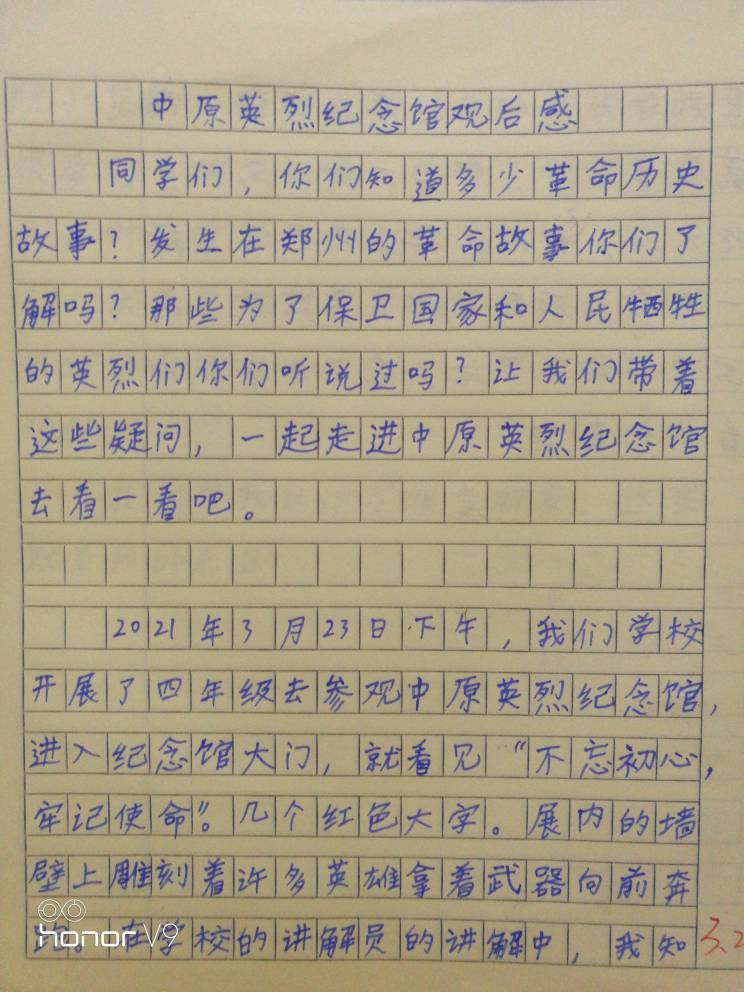 中原英烈纪念馆观后感
同学们，你们知道多少革命历史
故事？发生在郑州的革命故事你们了
解吗？那些为了保卫国家和人民牺牲
的英烈们你们听说过吗？让我们带着
这些疑问，一起走进中原英烈纪念馆
去看一看吧。
2021年3月23日下午，我们学校
开展了四年级去参观中原英烈纪念馆，
进入纪念馆大门，就看见“不忘初心，
牢记使命”。几个红色大字。展内的墙
壁上雕刻着许多英雄拿着武器向前奔
跑。在学校的讲解员的讲解中，我知
honor V9